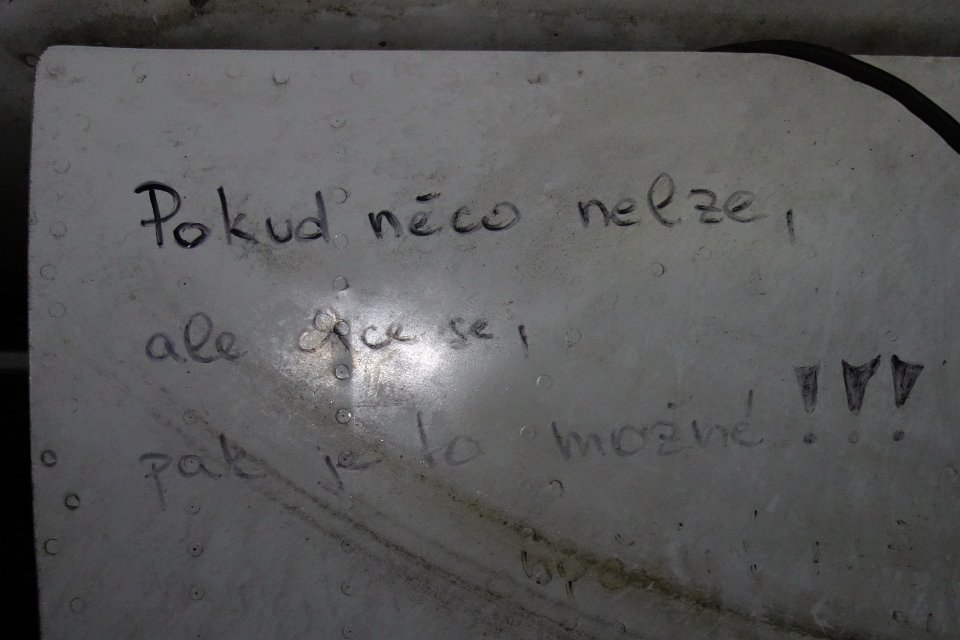 Pokud něco nelze,
ale chce se,
pak je to možné!!!